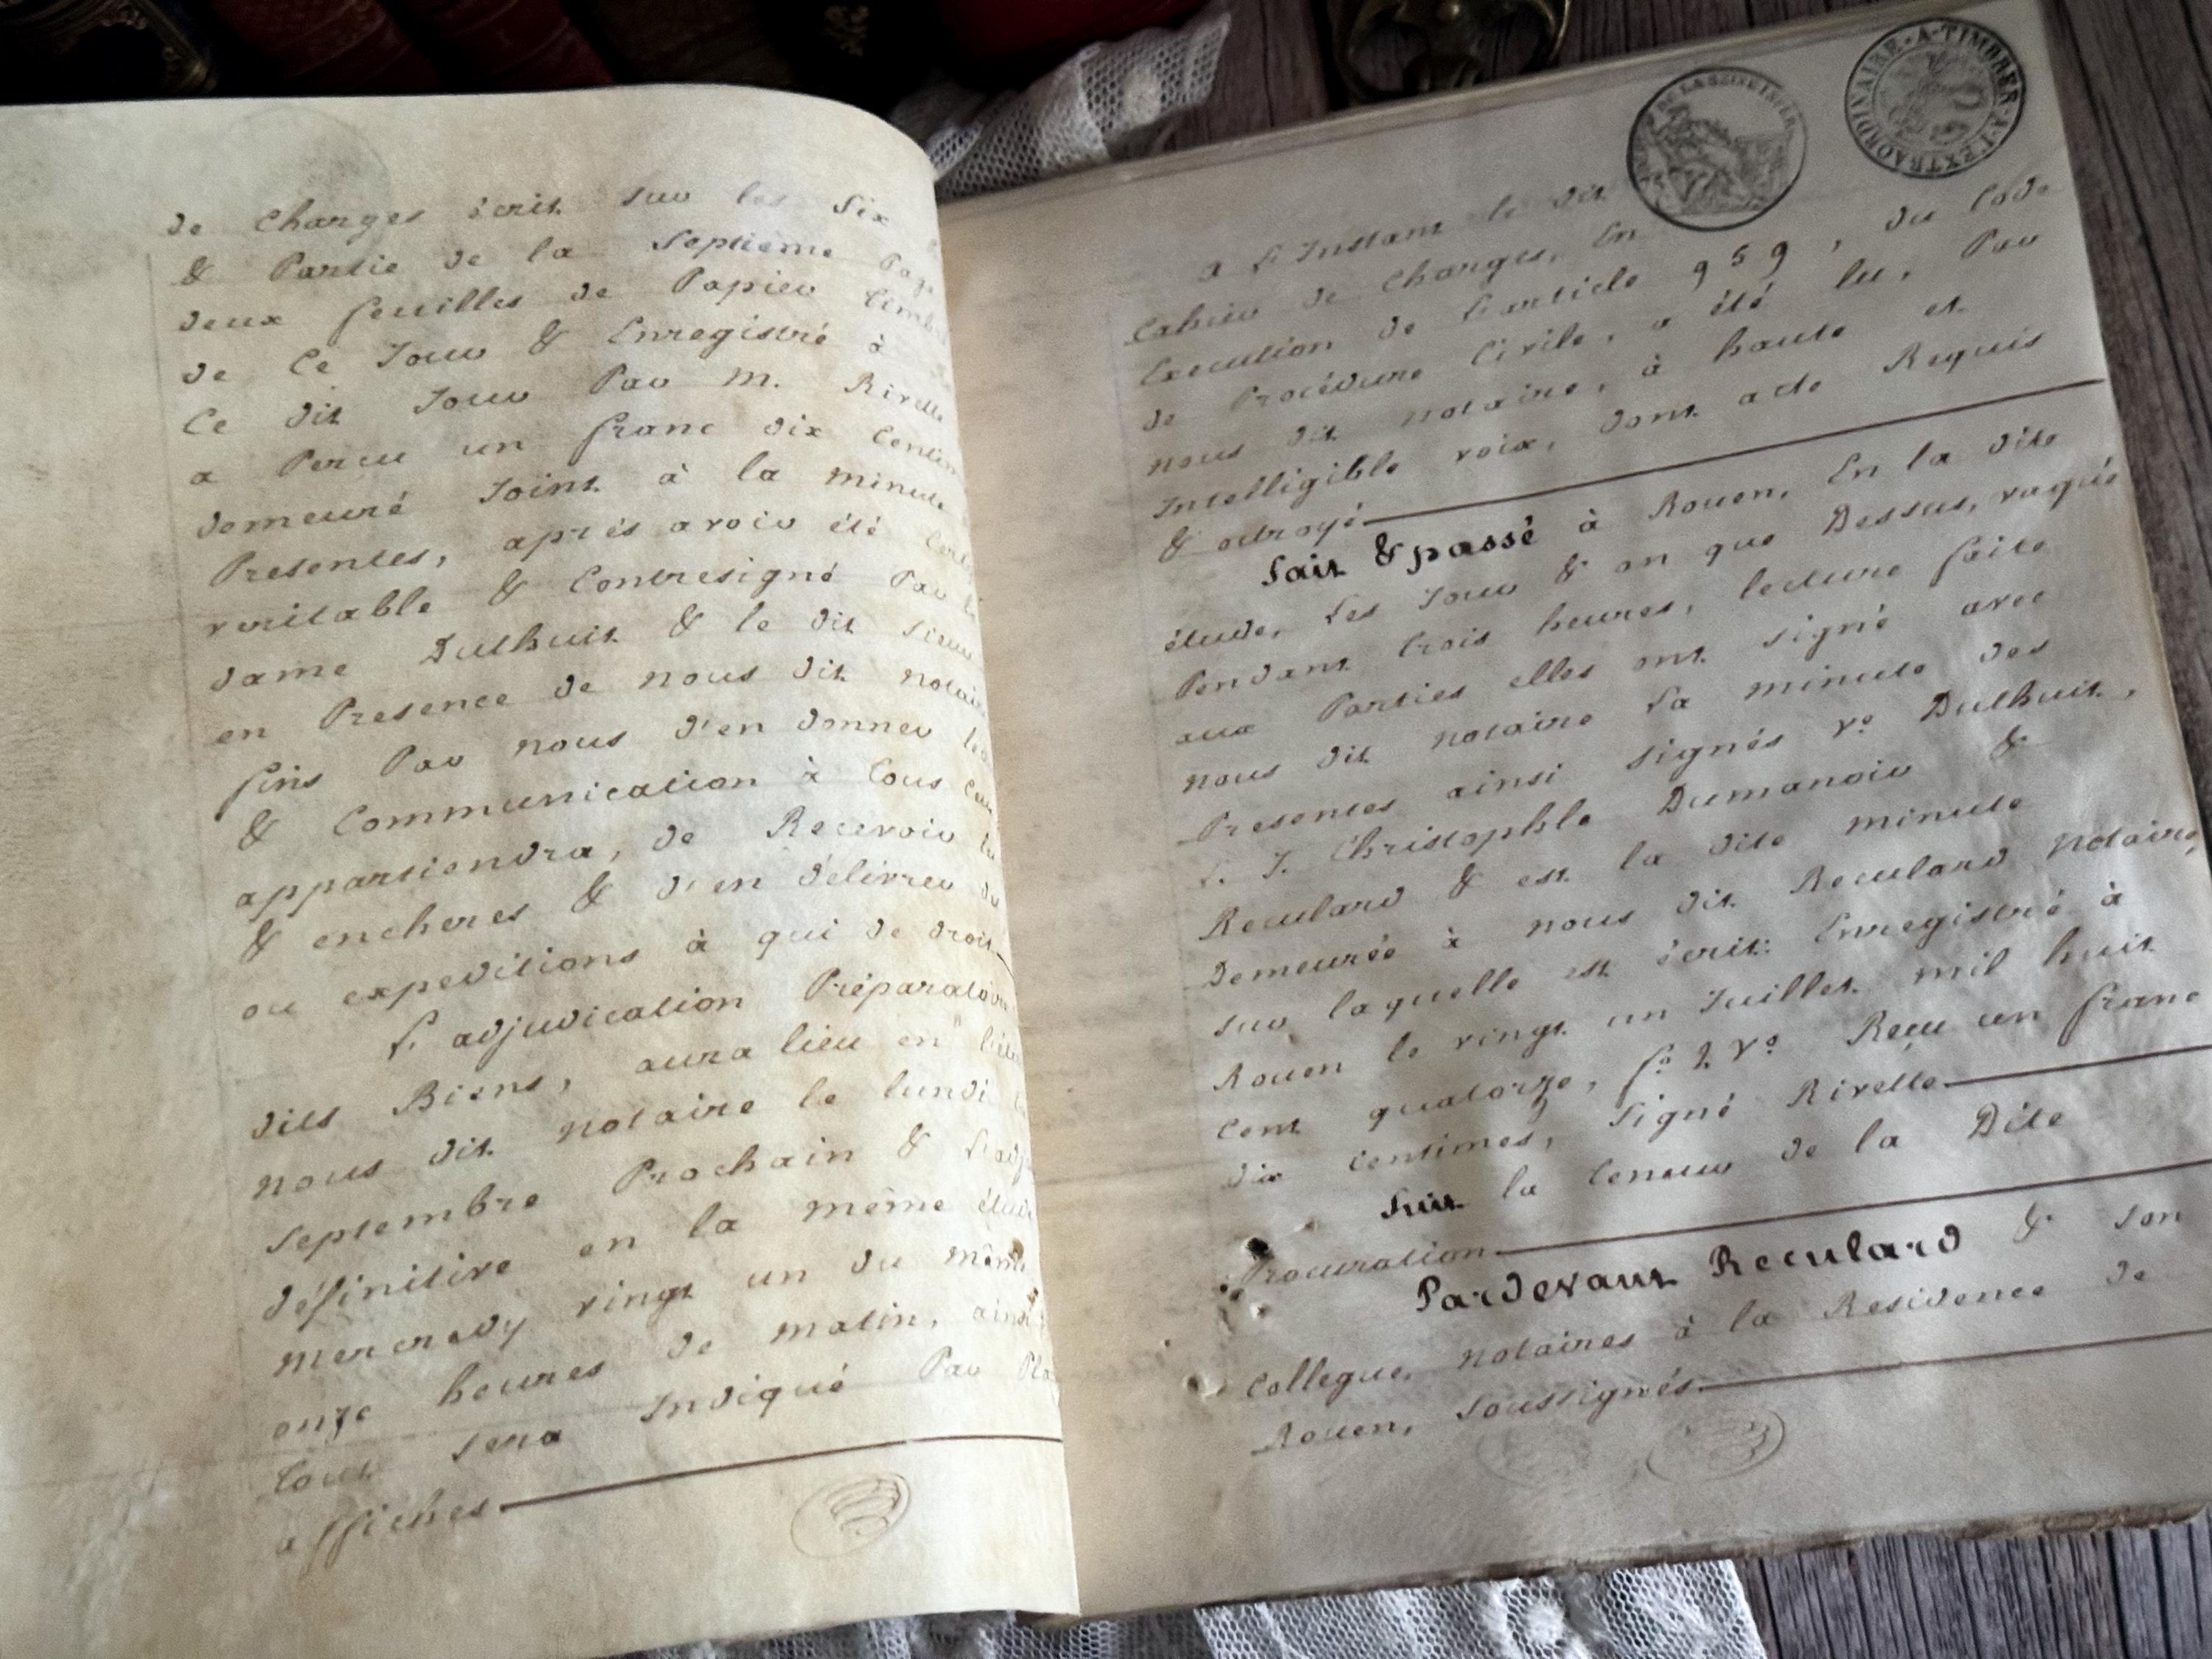 de Charges écrit sur les Six
& Partie de la Septieme Page
deux feuilles de Papier
de Ce Jour & Enregistré à
Ce dit Jour Par M. Rivelle
a Percu un franc dix
demeuré Joint à la minute
Presentes, aprés avoir été
veritable & Contresigné Par
dame Duthuit & le dit Sieur
en Presence de nous dit
fins Par nous d'en donner
& Communication à tous
appartiendra, de Recevoir
& encheres & d'en délivrer
ou expeditions à qui de droit
L'adjudication Préparatoire
dits Biens, aura lieu en
nous dit notaire le lundi
Septembre Prochain &
définitive en la même étude
mercredy vingt un du même
onze heures de matin, ainsi
tout sera Indiqué Par
affiches
A TIMBRER A L'EXTRAORDINAIRE
a L'Instant le dit
Cahier de Charges, En
Execution de L'article 959, du Code
de Procédure Civile, a été lu, Par
nous dit notaire, à haute et
Intelligible voix, dont acte Requis
& octroyé
fait & passé à Rouen, En la dite
étude, Les Jour & an que Dessus, vaqué
Pendant trois heures, lecture faite
aux Parties elles ont signé avec
nous dit notaire La minute des
Presentes ainsi signés Ve Duthuit,
L. J. Christophle Dumanoir &
Reculard & est la dite minute
Demeurée à nous dit Reculard notaire,
sur laquelle est écrit: Enregistré à
Rouen le vingt un Juillet mil huit
Cent quatorze, fo 2 Vo Reçu un franc
dix Centimes, Signé Rivelle
Suit la teneur de la Dite
Procuration
Pardevant Reculard & Son
Collegue, notaires à la Residence de
Rouen, Soussignés